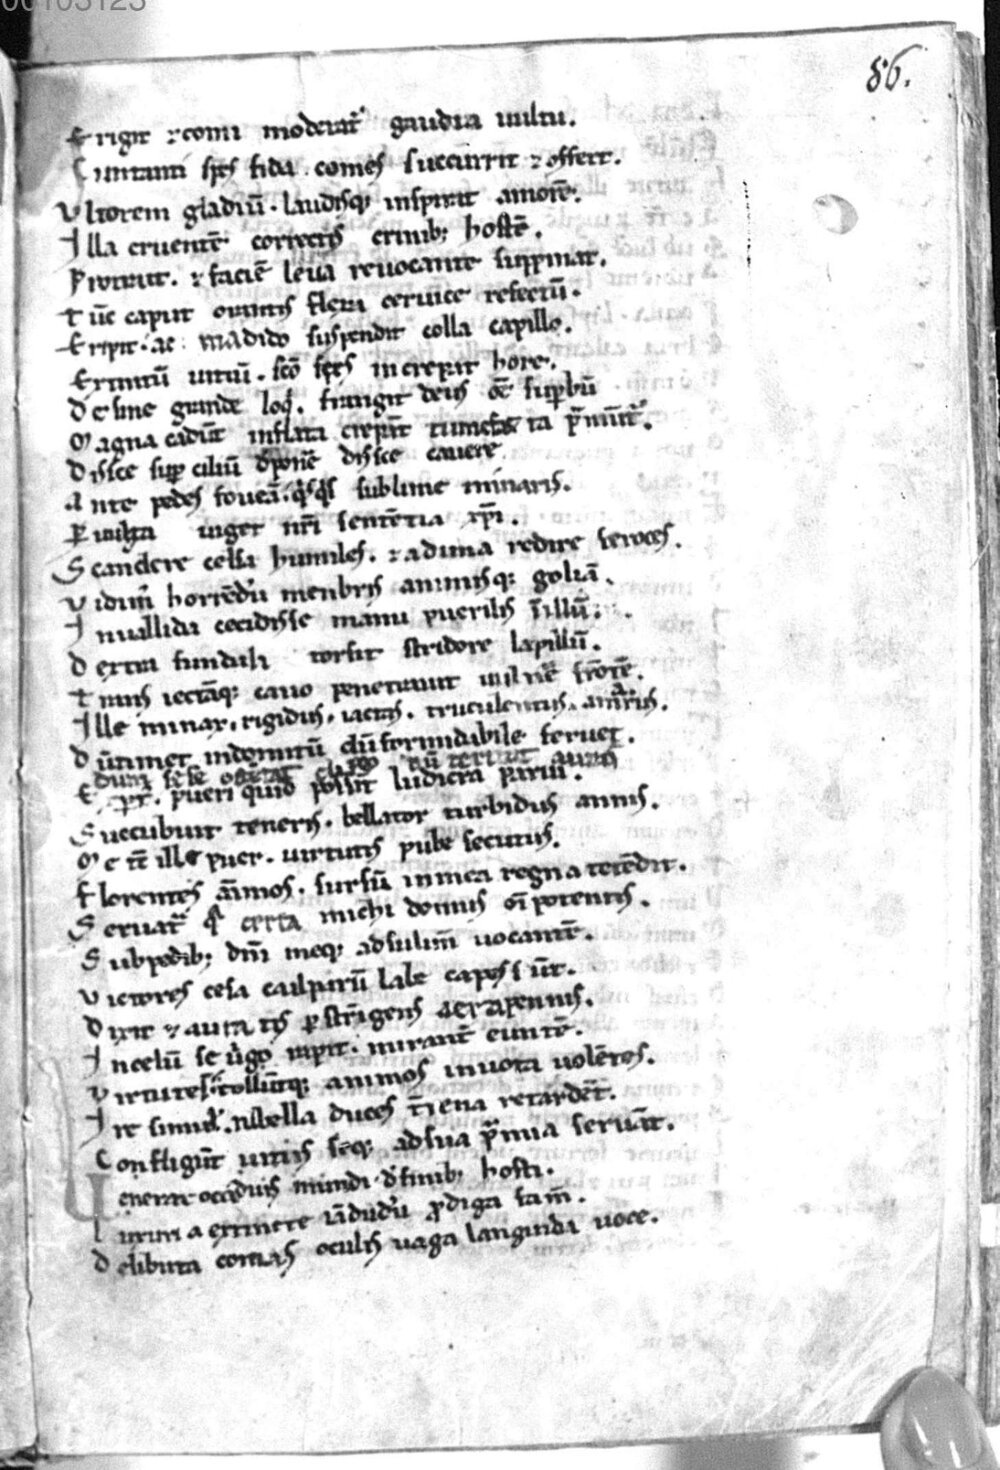 00103123
86.
Erigit ⁊ comi moderat̃ gaudia uultu.
Cunctanti spes fida comes succurrit ⁊ offert.
Vltorem gladiũ. laudisq; inspirat amorẽ.
Illa cruentẽ correctis crinib; hostẽ.
Prouit. ⁊ faciẽ leua reuocante supinat.
Tũc caput orantis flexa ceruice resectũ.
Eripit. ac madido suspendit colla capillo.
Extinctũ uitiũ. sc̃o sp̃es increpat hore.
Desine grande loq̃. frangit deus oẽ supbũ
Magna cadũt inflata crepãt tumefacta p̃munt̃.
Disce supciliũ dponẽ disce cauere
Ante pedes foueã. q̃sq̃s sublime minaris.
Peruulgata uiget nr̃i sentẽtia xp̃i.
Scandere celsa humiles. ⁊ ad ima redire feroces.
Vidim̃ horrẽdũ menbris animisq; goliã.
Inuallida cecidisse manu puerilis
Dextra fundali torsit stridore lapillũ.
Traiectãq; cauo penetrauit uulnẽ frõtẽ.
Ille minax. rigidus. iactãs. truculentus. amarus.
Dũ tumet indomitũ dũ formidabile feruet.
Dum sese ostentat clipeo dũ territat auras
Exptꝰ. pueri quid possint ludicra parui.
Succubuit teneris. bellator turbidus annis.
Me tc̃ ille puer. uirtutis pube secutus.
Florentes ãimos. sursũ in mea regna tetẽdit.
Seruat̃ q̃ certa michi domus oĩpotentis.
Sub pedib; dñi meq; ad sulim̃ uocantẽ.
Victores cesa culparũ labe capess ũt.
Dixit ⁊ auratis pstrĩgens aera pennis.
In celũ se ũgo rapit. mirant̃ euntẽ.
Virtutes. tollũtq; animos in uota uolẽtes.
Ire simul. ni bella duces t̃rena retardẽt.
Confligũt uitiis seq; ad sua p̃mia seruãt.
Venerat occiduis mundi d̃ finib; hosti.
Luxuria extincte iãdudũ pdiga fam̃.
Delibuta comas oculis uaga languida uoce.